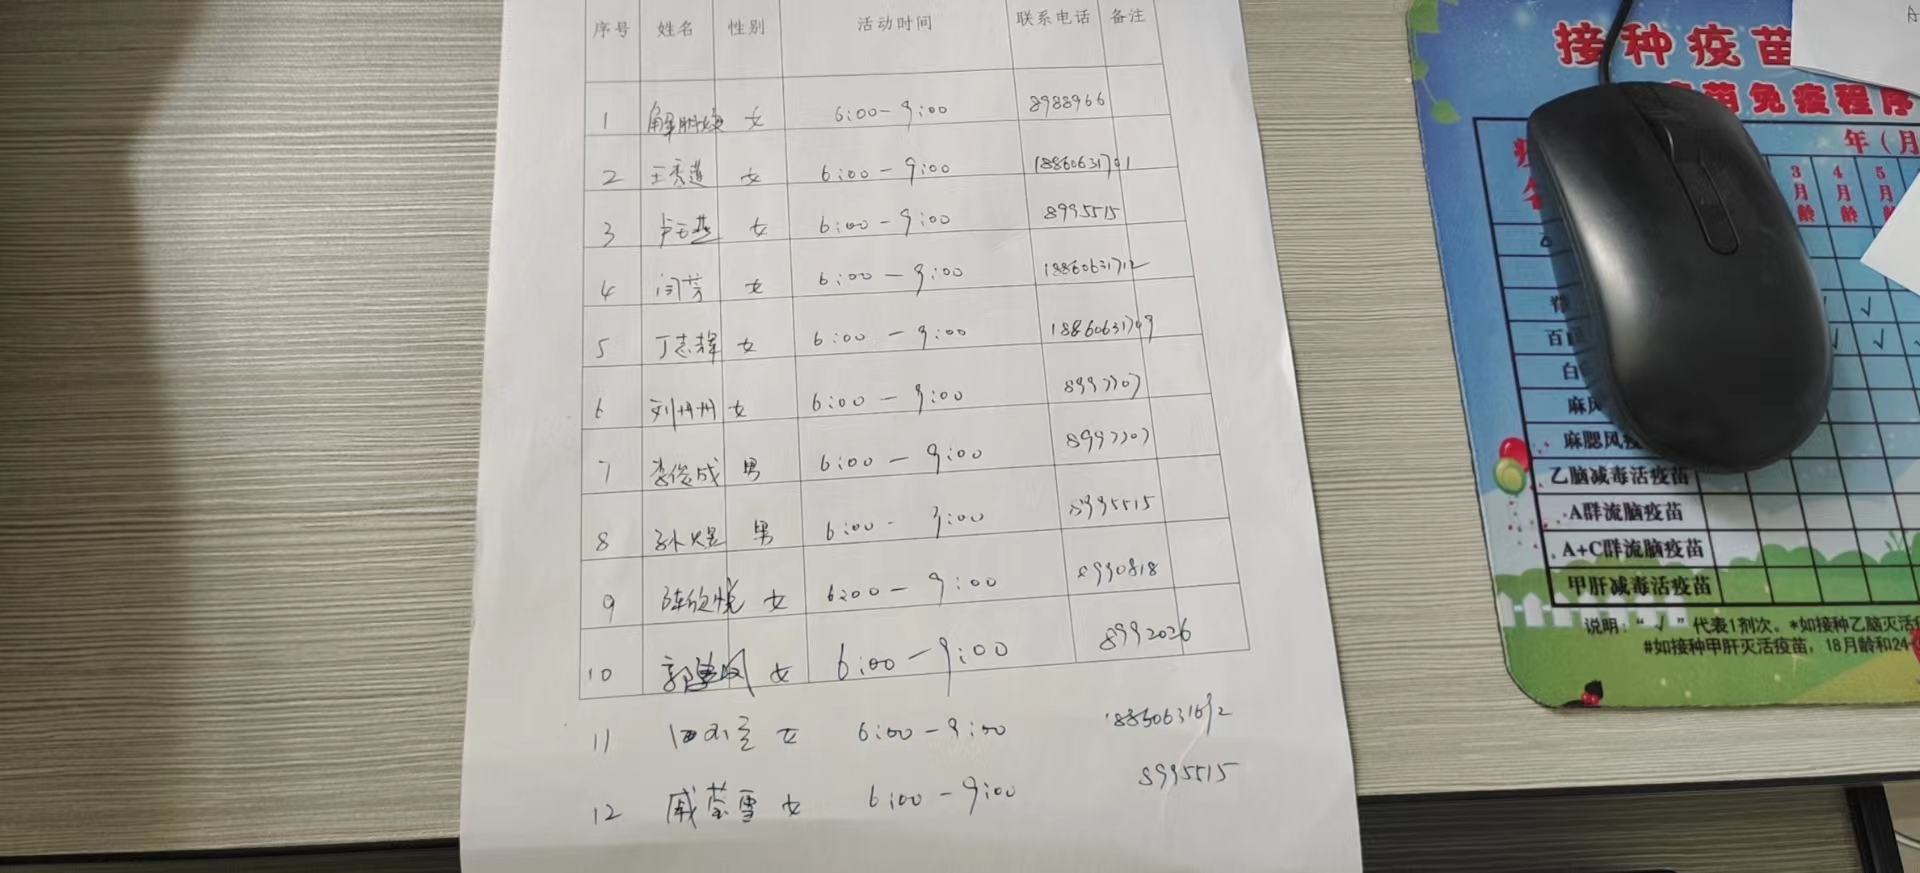 序号 姓名 性别 活动时间 联系电话 备注
1 女 6:00-9:00 8988966
2 王秀莲 女 6:00-9:00 18860631791
3 女 6:00-9:00 8995515
4 闫芳 女 6:00-9:00 18860631712
5 丁志辉 女 6:00-9:00 18860631709
6 刘丹丹 女 6:00-9:00 8997707
7 李俊成 男 6:00-9:00 8997707
8 孙煜 男 6:00-9:00 8995515
9 陈欣悦 女 6:00-9:00 8990818
10 女 6:00-9:00 8992026
11 女 6:00-9:00
12 戚莹雪 女 6:00-9:00 8995515
接种疫苗
苗免疫程序
年(月
3月龄 4月龄 5月龄
百
白
麻风
麻腮风
乙脑减毒活疫苗
A群流脑疫苗
A+C群流脑疫苗
甲肝减毒活疫苗
说明:“√”代表1剂次。*如接种乙脑灭活
#如接种甲肝灭活疫苗,18月龄和24